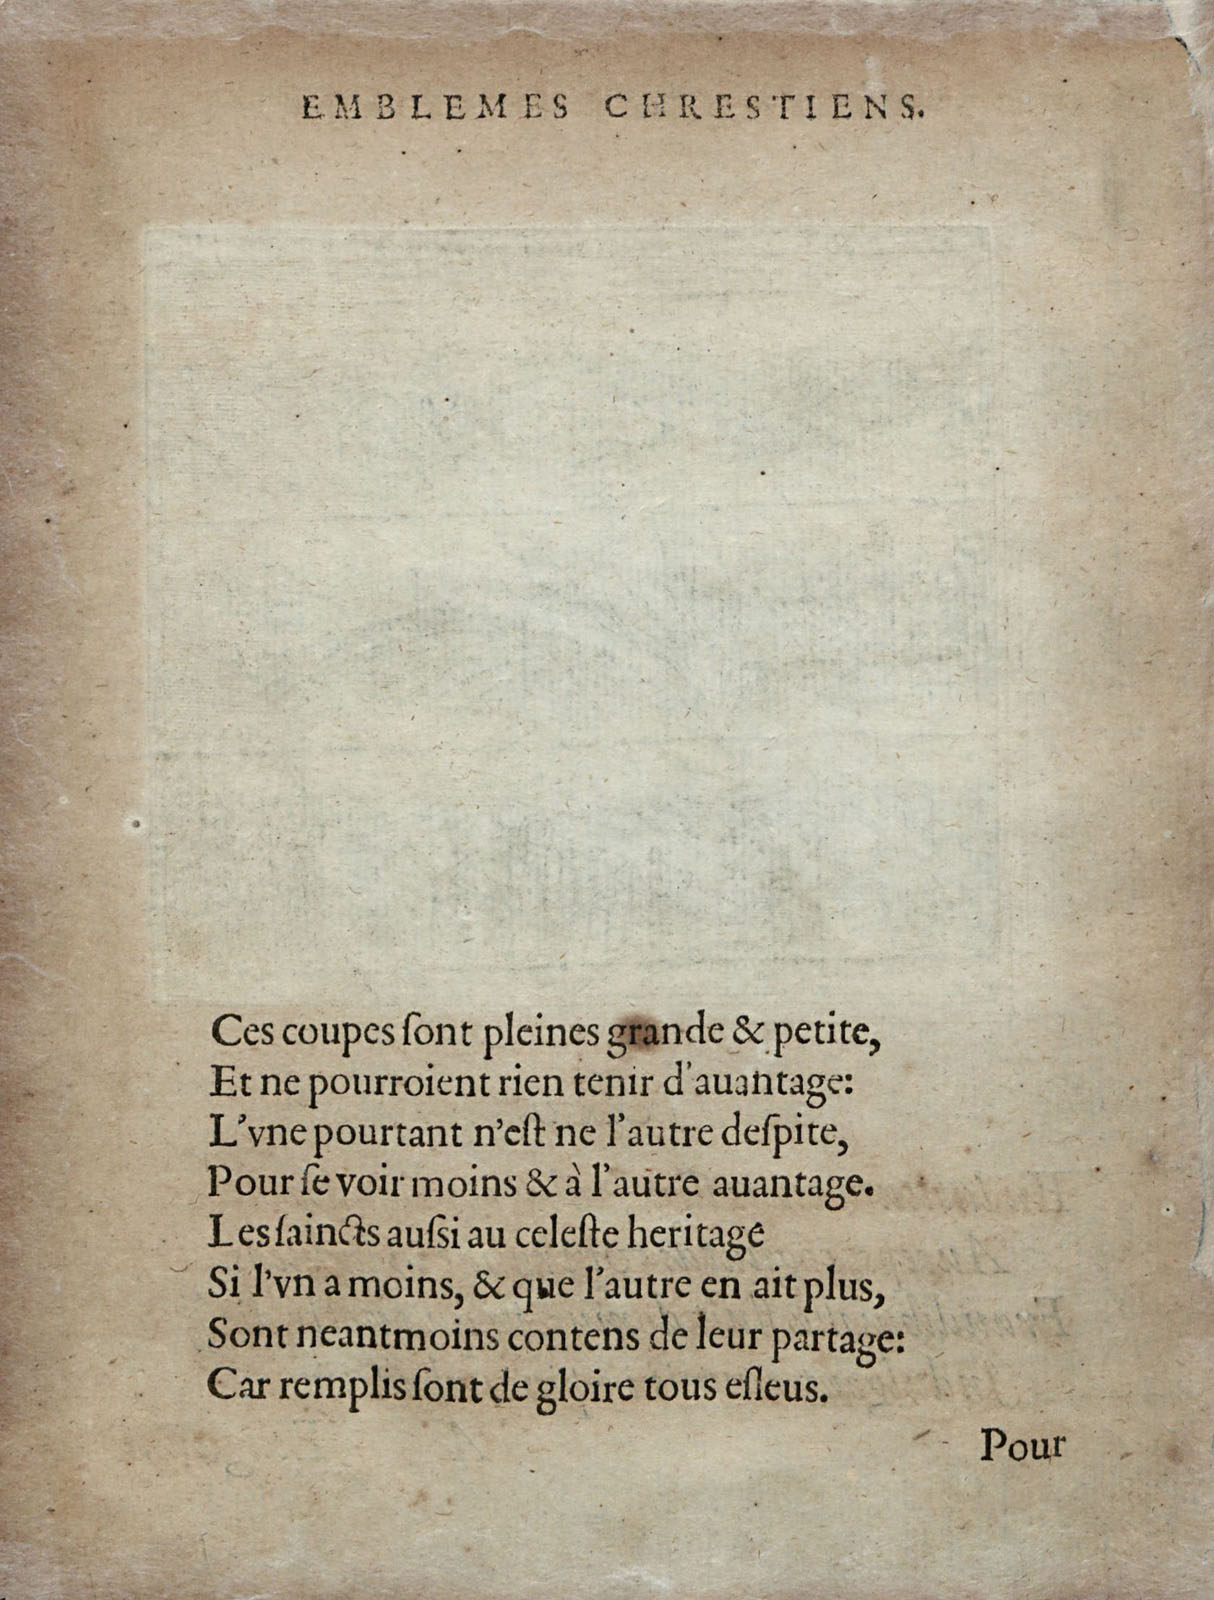 EMBLEMES CHRESTIENS.
Ces coupes ſont pleines grande & petite,
Et ne pourroient rien tenir d'auantage:
L'vne pourtant n'eſt ne l'autre deſpite,
Pour ſe voir moins & à l'autre auantage.
Les ſaincts auſsi au celeſte heritage
Si l'vn a moins, & que l'autre en ait plus,
Sont neantmoins contens de leur partage:
Car remplis ſont de gloire tous eſleus.
Pour